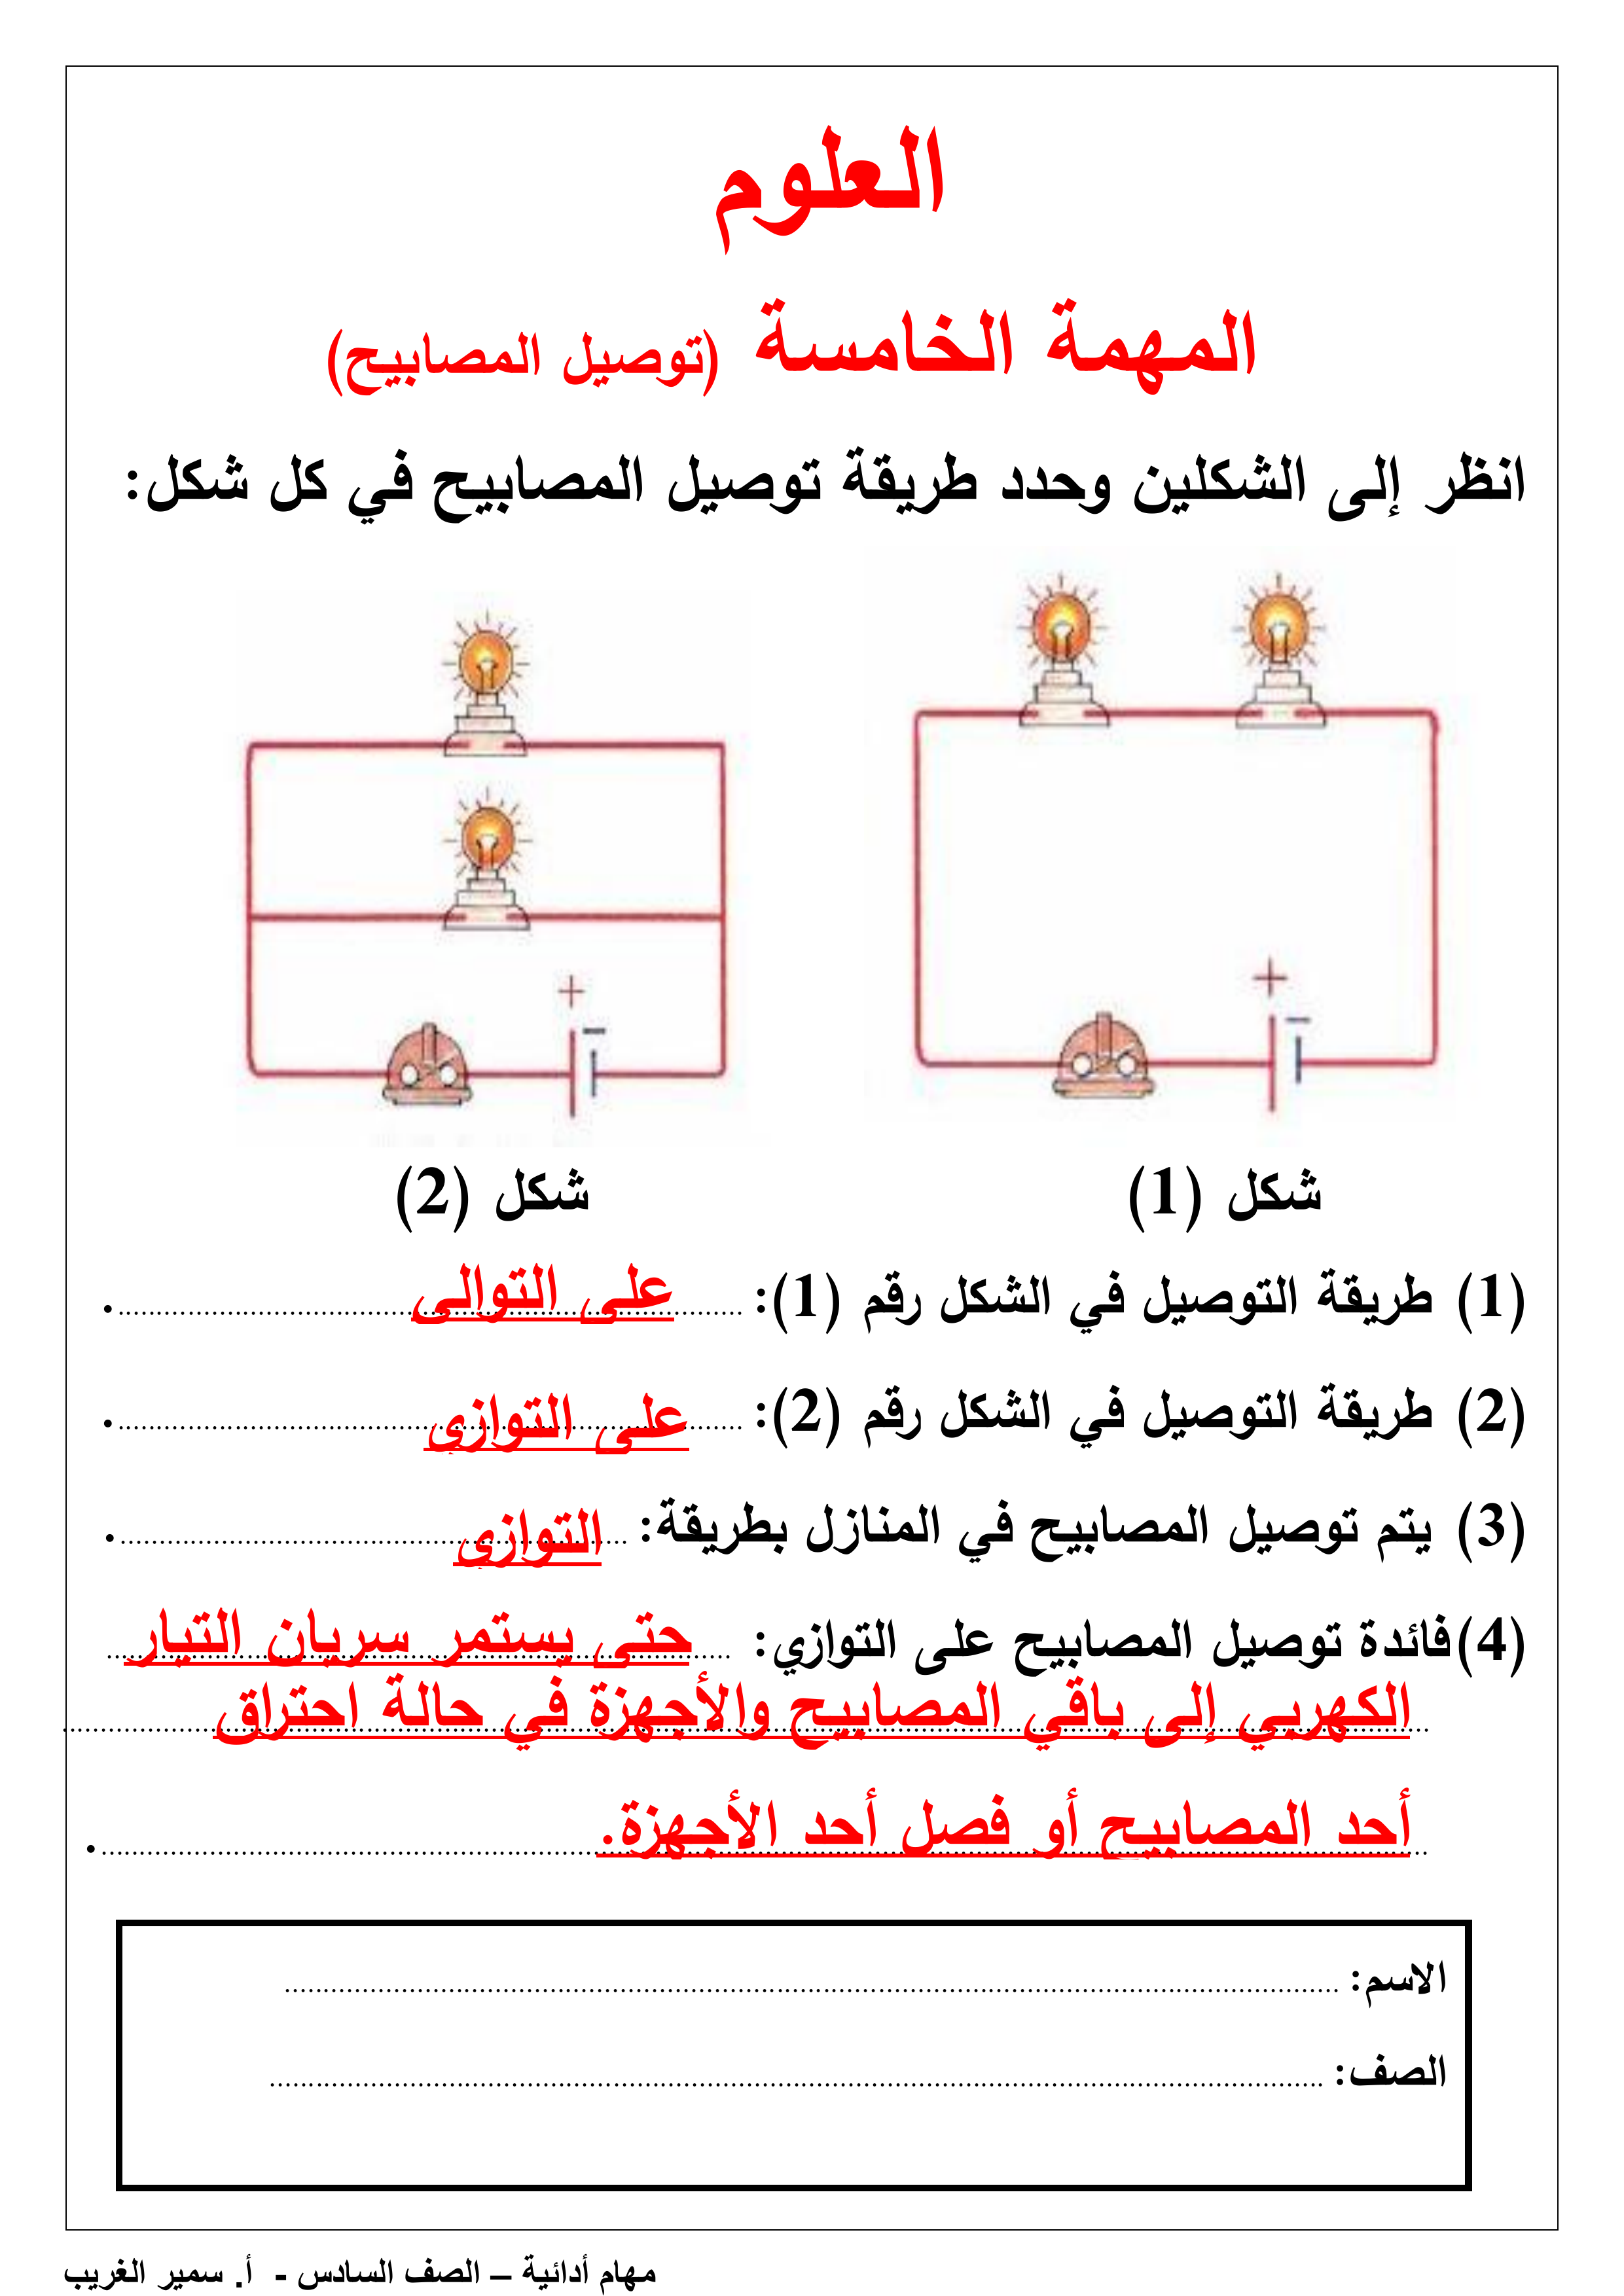 العلوم
المهمة الخامسة (توصيل المصابيح)
انظر إلى الشكلين وحدد طريقة توصيل المصابيح في كل شكل:
+
−
+
−
شكل (1)
شكل (2)
(1) طريقة التوصيل في الشكل رقم (1): على التوالى.
(2) طريقة التوصيل في الشكل رقم (2): على التوازي.
(3) يتم توصيل المصابيح في المنازل بطريقة: التوازي.
(4) فائدة توصيل المصابيح على التوازي: حتى يستمر سريان التيار
الكهربي إلى باقي المصابيح والأجهزة في حالة احتراق
أحد المصابيح أو فصل أحد الأجهزة.
الاسم:
الصف:
مهام أدائية – الصف السادس - أ. سمير الغريب